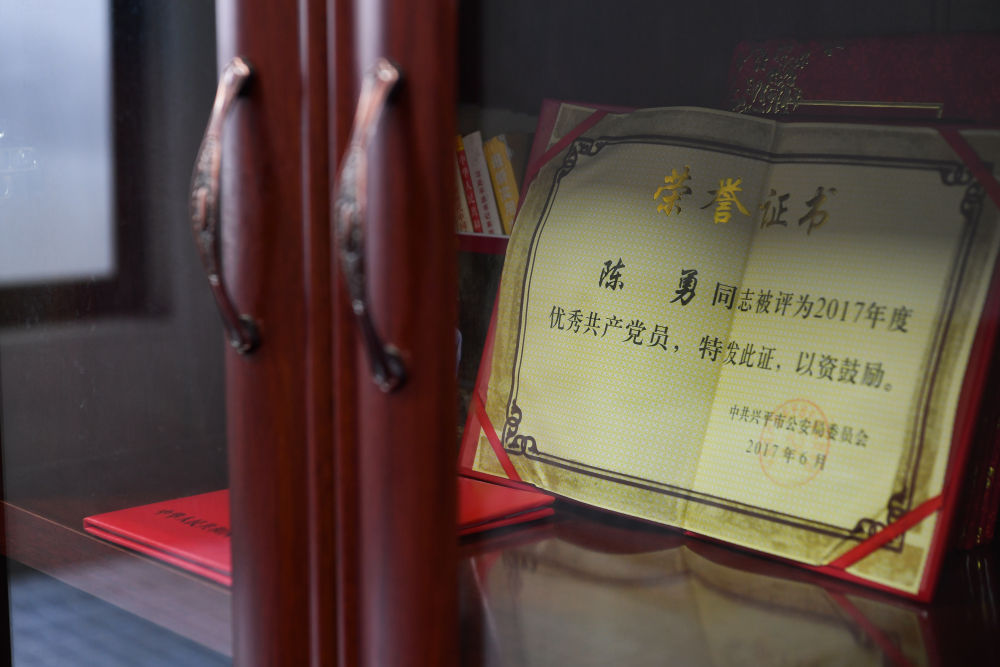 荣誉证书
陈 勇 同志被评为2017年度
优秀共产党员，特发此证，以资鼓励。
中共兴平市公安局委员会
2017年6月
中华人民共和国